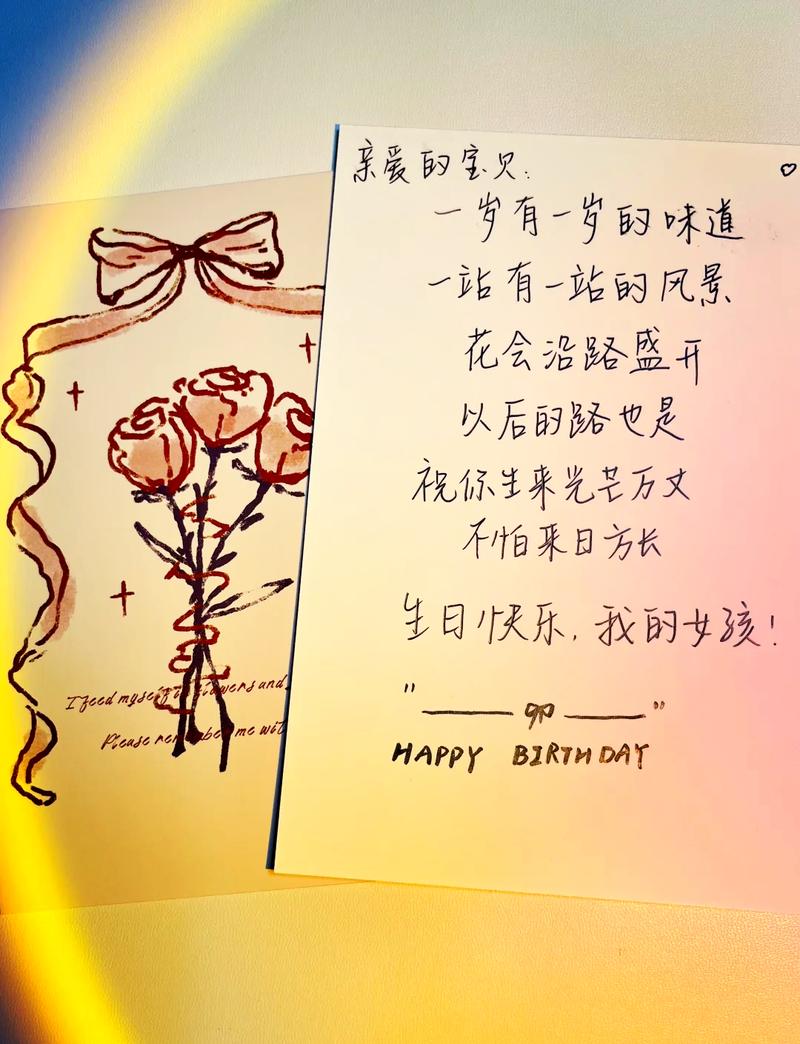 I feed myself flowers and
Please remember me wit
亲爱的宝贝:
一岁有一岁的味道
一站有一站的风景
花会沿路盛开
以后的路也是
祝你生来光芒万丈
不怕来日方长
生日快乐,我的女孩!
HAPPY BIRTHDAY